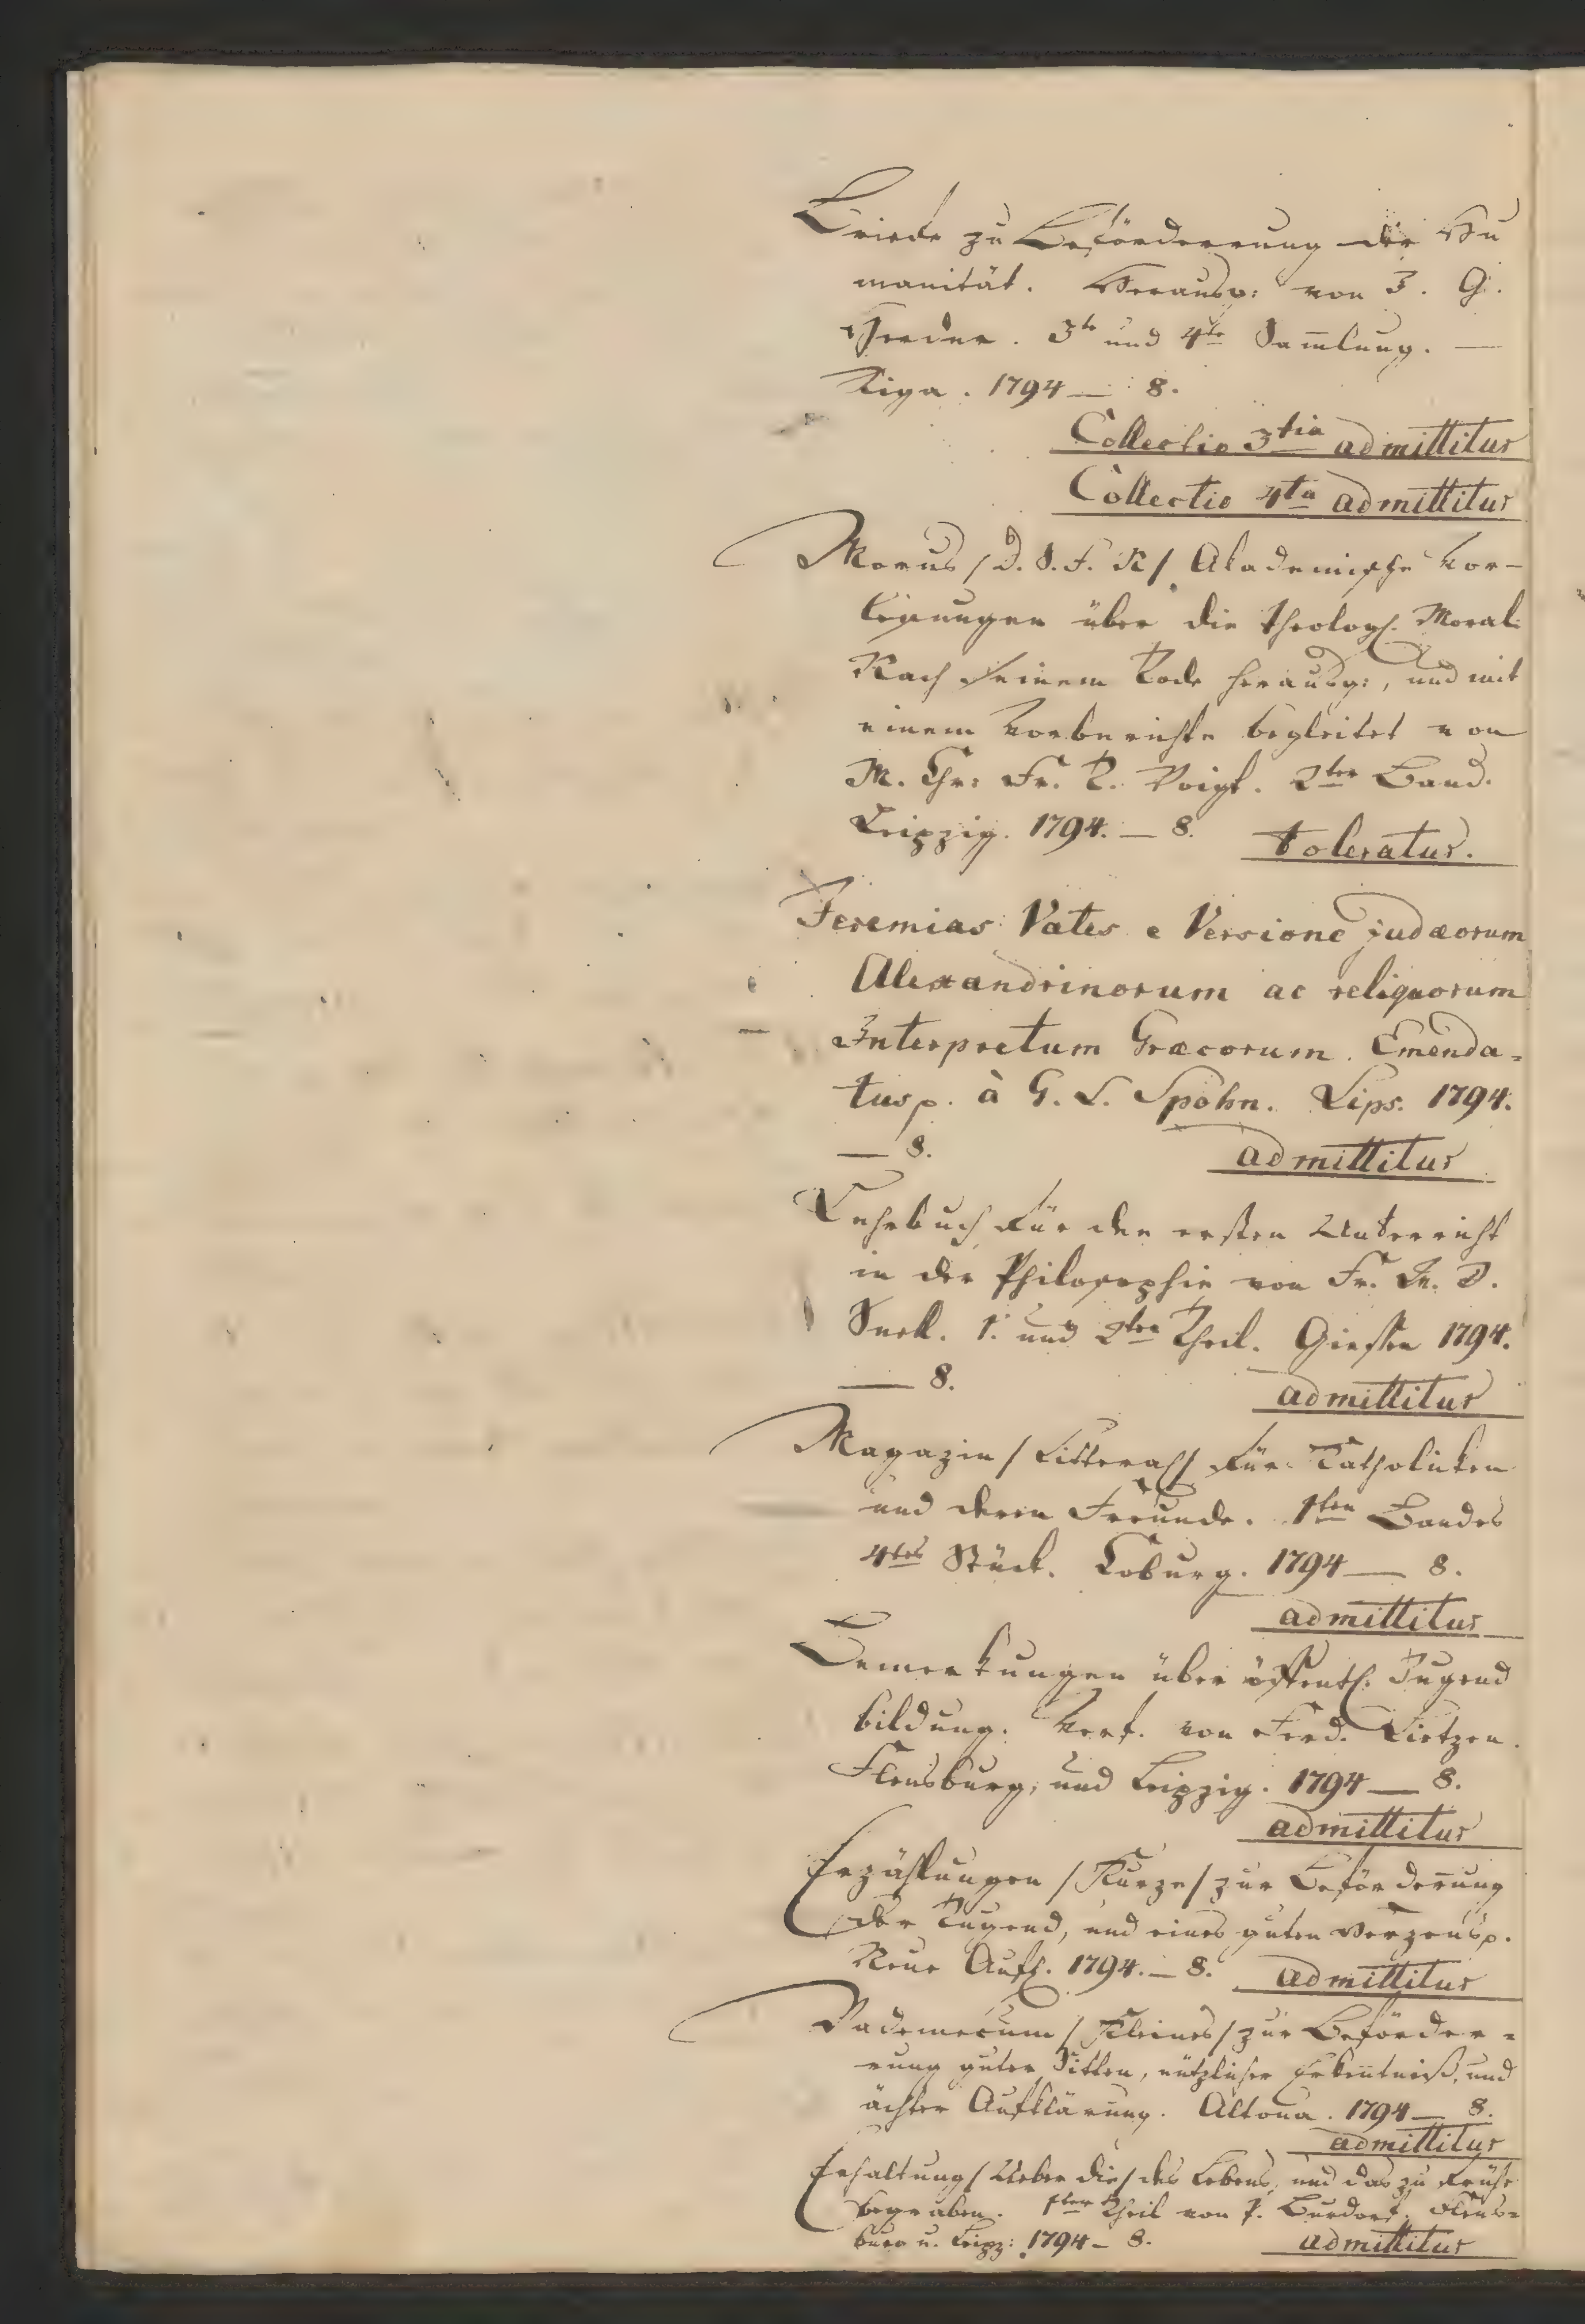 Briefe zu Beförderung der Hu
manität. Herausg: von J. G.
Herder. 3te und 4te Sam̅lung. —
Riga. 1794 — 8.
Collectio 3tia admittitur
Collectio 4ta admittitur
Morus / D. S. F. N / Akademische Vor-
lesungen über die theologl. Moral.
Nach seinem Tode herausg:, und mit
einem Vorberichte begleitet von
M. Chr: Fr. T. Voigt. 2ter Band.
Leipzig. 1794. — 8. toleratur.
Jeremias Vates e Versione judæorum
Alexandrinorum ac reliquorum
Interpretum Græcorum. Emenda-
tusp. à G. L. Spohn. Lips. 1794.
— 8. admittitur
Lehrbuch für den ersten Unterricht
in der Philosophie von Fr. W. D.
Snell. 1. und 2ter Theil. Giessen 1794.
— 8. admittitur
Magazin / Litteral / für Catholicken
und deren Freunde. 1ten Bandes
4tes Stück. Coburg. 1794 — 8.
admittitur
Bemerkungen über öffentl. Jugend
bildung. Verf. von Ferd. Lietzen.
Flensburg, und Leipzig. 1794 — 8.
admittitur
Erzählungen / Kurze / zur Beförderung
der Tugend, und eines guten Herzensp.
Neue Aufl. 1794. — 8. admittitur
Vademecum / Kleines / zur Beförder-
rung guter Sitten, nützlicher Erken̅tniß, und
ächter Aufklärung. Altona. 1794 — 8.
admittitur
Erhaltung / Ueber die / des Lebens, und das zu frühe
begraben. 1ter Theil von P. Burdorf. Flens-
burg u. Leipz: 1794 — 8. admittitur